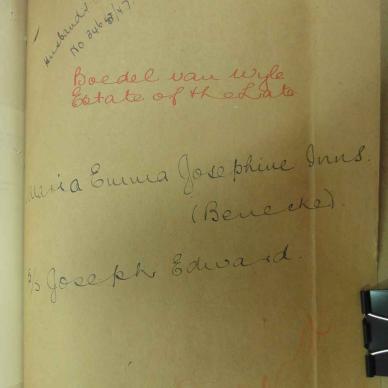 Husband's
No 3468/47
Boedel van Wyle
Estate of the Late
Maria Emma Josephine Inns.
(Benecke).
s/s Joseph Edward.